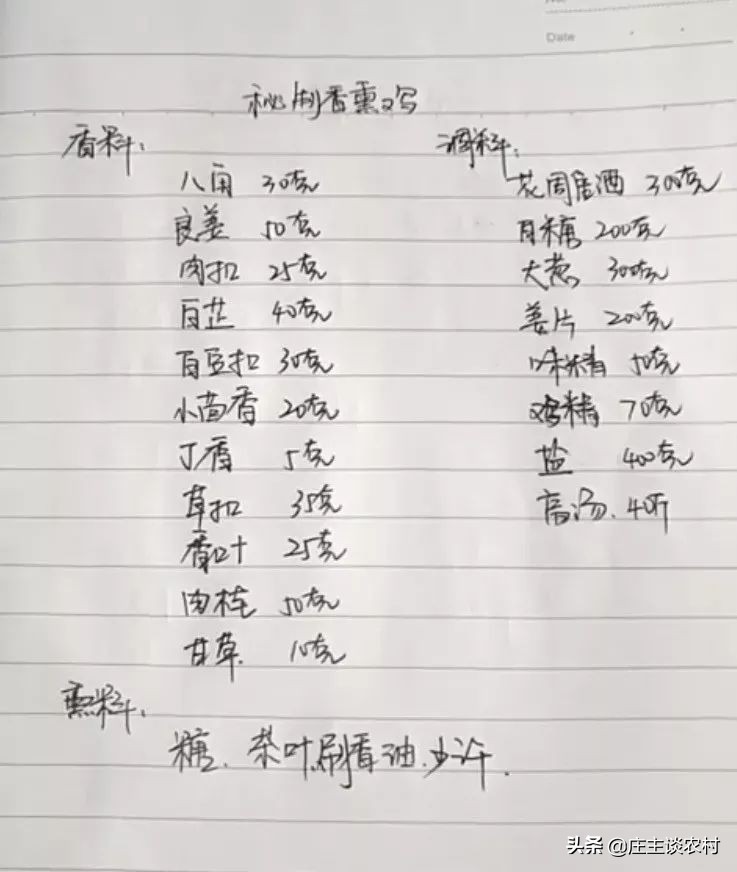 No
Date
秘制香熏鸡
香料：
八角 30克
良姜 50克
肉扣 25克
百芷 40克
百豆扣 30克
小茴香 20克
丁香 5克
草扣 35克
香叶 25克
肉桂 50克
甘草 10克
调料：
花周居酒 300克
白糖 200克
大葱 300克
姜片 200克
味精 50克
鸡精 70克
盐 400克
高汤、40斤
熏料、
糖、茶叶、刷香油、少许.
头条 @庄主谈农村